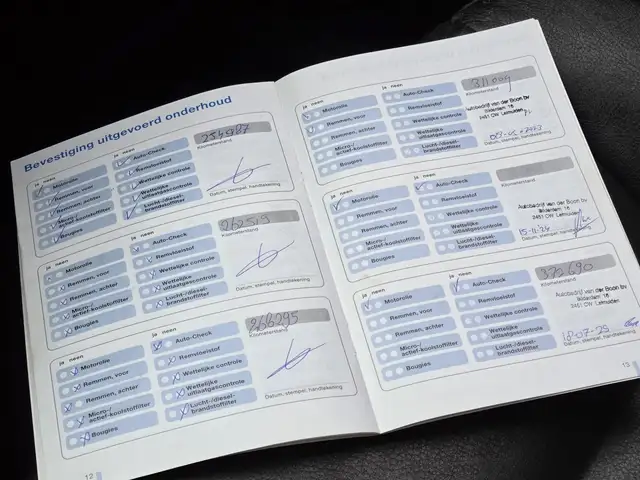 Bevestiging uitgevoerd onderhoud
ja neen
ja neen
Motorolie
Remmen, voor
Remmen, achter
Micro-/
actief-koolstoffilter
Bougies
Auto-Check
Remvloeistof
Wettelijke controle
Wettelijke
uitlaatgascontrole
Lucht-/diesel-
brandstoffilter
254987
Kilometerstand
Datum, stempel, handtekening
Motorolie
Remmen, voor
Remmen, achter
Micro-/
actief-koolstoffilter
Bougies
ja neen
Auto-Check
Remvloeistof
Wettelijke controle
Wettelijke
uitlaatgascontrole
Lucht-/diesel-
brandstoffilter
262519
Kilometerstand
Datum, stempel, handtekening
ja neen
Motorolie
Remmen, voor
Remmen, achter
Micro-/
actief-koolstoffilter
Bougies
ja neen
Auto-Check
Remvloeistof
Wettelijke controle
Wettelijke
uitlaatgascontrole
Lucht-/diesel-
brandstoffilter
268295
Kilometerstand
Datum, stempel, handtekening
12
ja neen
Motorolie
Remmen, voor
Remmen, achter
Micro-/
actief-koolstoffilter
Bougies
ja neen
Auto-Check
Remvloeistof
Wettelijke controle
Wettelijke
uitlaatgascontrole
Lucht-/diesel-
brandstoffilter
311009
Kilometerstand
Autobedrijf van der Boon bv
2451 CW Leimuiden
Datum, stempel, handtekening
ja neen
Motorolie
Remmen, voor
Remmen, achter
Micro-/
actief-koolstoffilter
Bougies
ja neen
Auto-Check
Remvloeistof
Wettelijke controle
Wettelijke
uitlaatgascontrole
Lucht-/diesel-
brandstoffilter
Kilometerstand
Autobedrijf van der Boon bv
2451 CW Leimuiden
15-11-24
Datum, stempel, handtekening
ja neen
Motorolie
Remmen, voor
Remmen, achter
Micro-/
actief-koolstoffilter
Bougies
ja neen
Auto-Check
Remvloeistof
Wettelijke controle
Wettelijke
uitlaatgascontrole
Lucht-/diesel-
brandstoffilter
372690
Kilometerstand
Autobedrijf van der Boon bv
2451 CW Leimuiden
Datum, stempel, handtekening
13